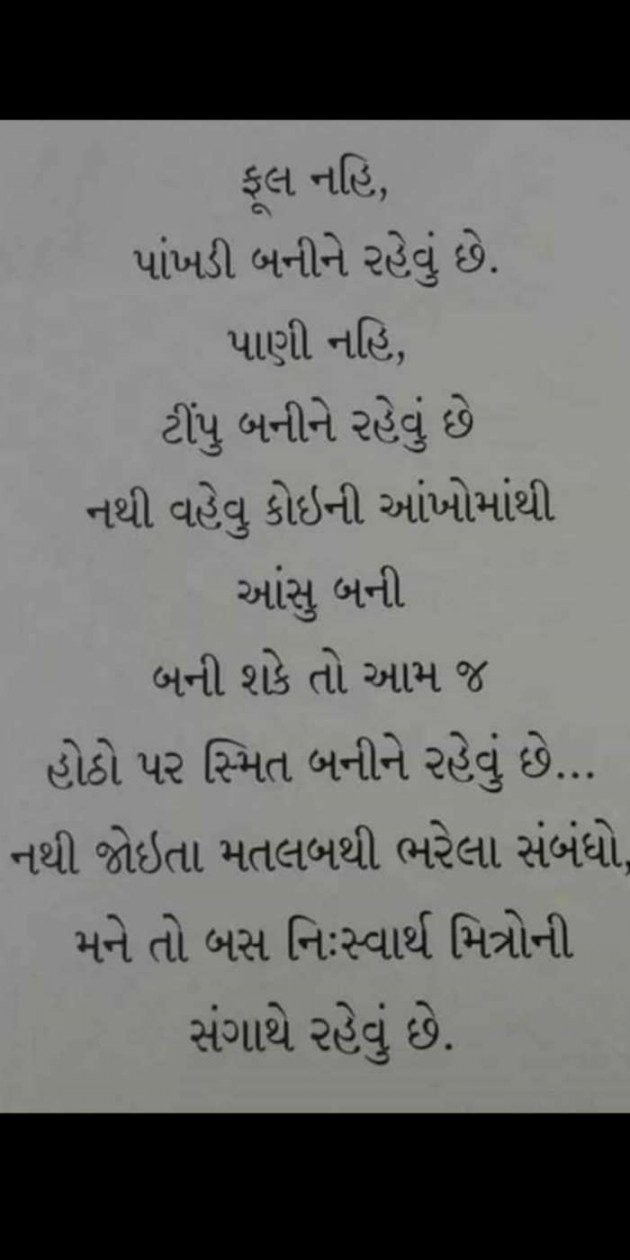 ફૂલ નહિ,
પાંખડી બનીને રહેવું છે.
પાણી નહિ,
ટીંપુ બનીને રહેવું છે
નથી વહેવુ કોઇની આંખોમાંથી
આંસુ બની
બની શકે તો આમ જ
હોઠો પર સ્મિત બનીને રહેવું છે...
નથી જોઇતા મતલબથી ભરેલા સંબંધો,
મને તો બસ નિઃસ્વાર્થ મિત્રોની
સંગાથે રહેવું છે.